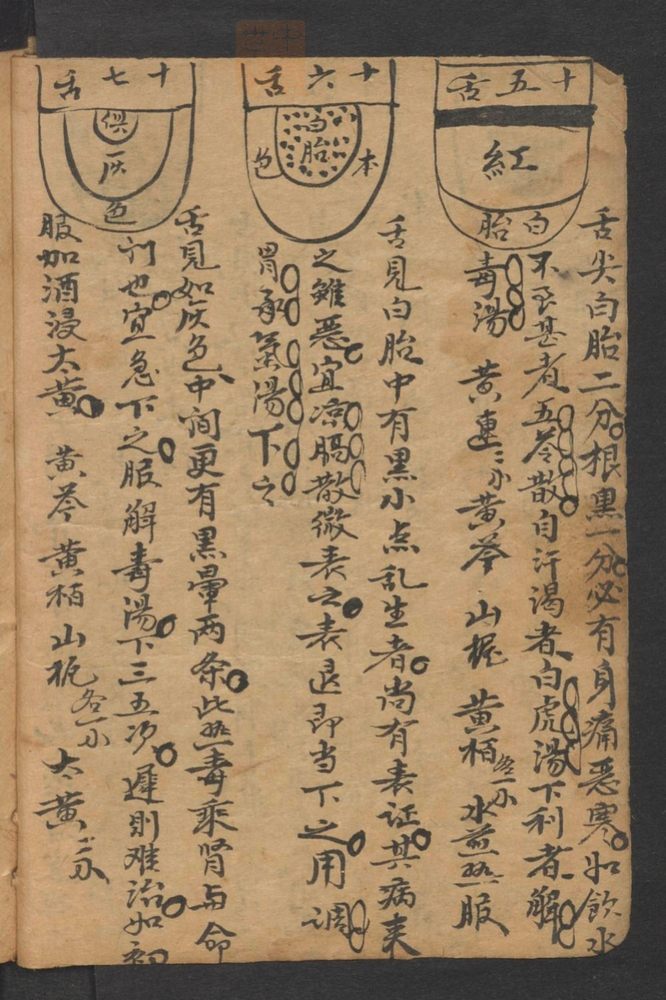 十五舌
紅
白胎
舌尖白胎二分根黒一分必有身痛恶寒如飲水
不至甚者五苓散自汗渴者白虎湯下利者解
毒湯 黄連二分黄芩 山梔 黄栢各一分 水煎热服
十六舌
白胎
本色
舌見白胎中有黑小点乱生者尚有表证其病来
之雖恶宜凉膈散微表之表退即当下之用调
胃承氣湯下之
十七舌
俱灰色
舌見如灰色中间更有黑暈两条此热毒乘肾与命
门也宜急下之服解毒湯下三五次遲則难治如初
服加酒浸大黄 黄芩 黄栢 山梔各一分 大黄二分